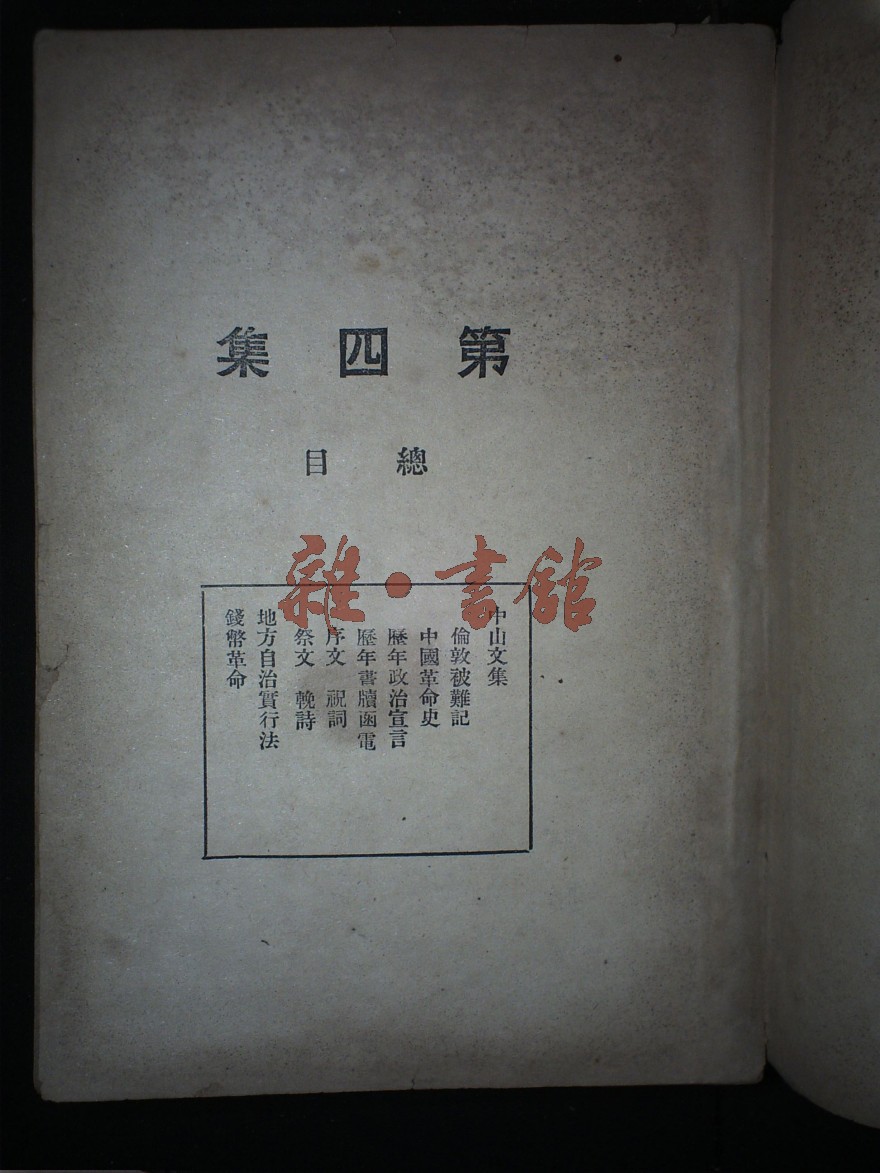 第四集
總目
中山文集
倫敦被難記
中國革命史
歷年政治宣言
歷年書牘函電
序文 祝詞
祭文 輓詩
地方自治實行法
錢幣革命
雜·書館